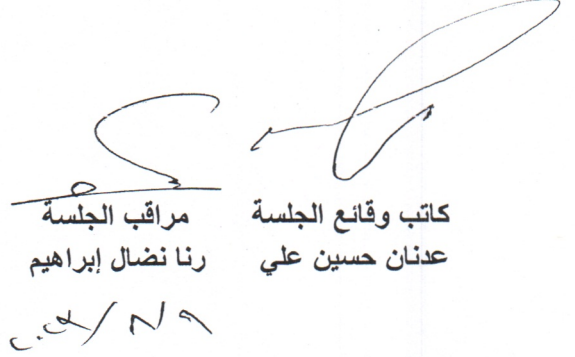 كاتب وقائع الجلسة
عدنان حسين علي
مراقب الجلسة
رنا نضال إبراهيم